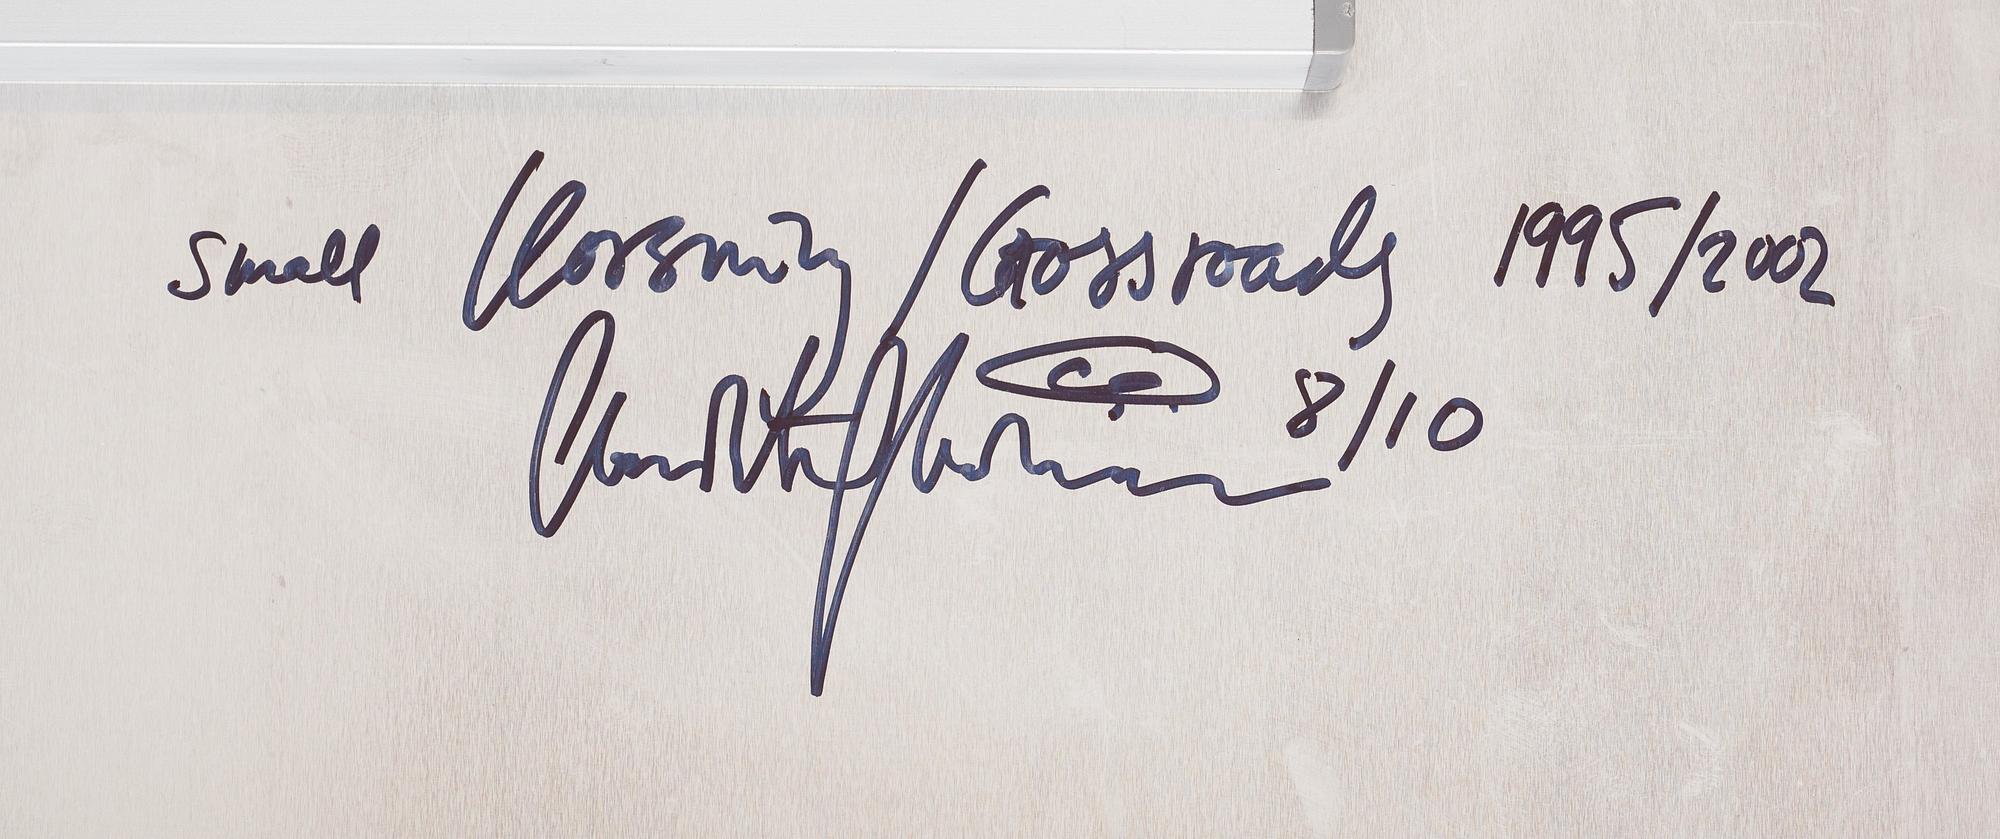 Small Korsning / Crossroads 1995/2002
8/10